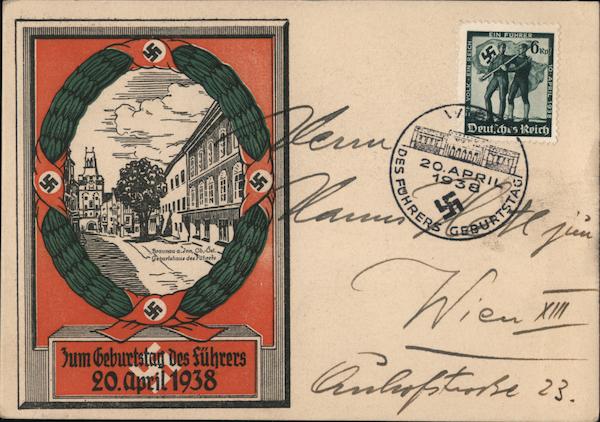 Braunau a. Inn, Ob.-Öst.
Geburtshaus des Führers
Zum Geburtstag des Führers
20. April 1938
EIN FÜHRER
EIN VOLK · EIN REICH
10. APRIL 1938
6 Rpf
Deutsches Reich
WIEN
20. APRIL
1938
DES FÜHRERS GEBURTSTAG
Herrn
Hanns jun
Wien XIII
23.